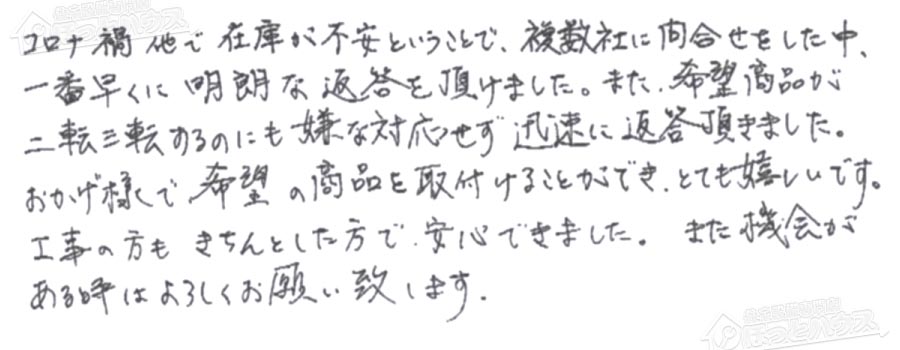 コロナ禍他で在庫が不安ということで、複数社に問合せをした中、
一番早くに明朗な返答を頂けました。また、希望商品が
二転三転するのにも嫌な対応せず迅速に返答頂きました。
おかげ様で希望の商品を取付けることができ、とても嬉しいです。
工事の方もきちんとした方で安心できました。また機会が
ある時はよろしくお願い致します。
ほっとハウス